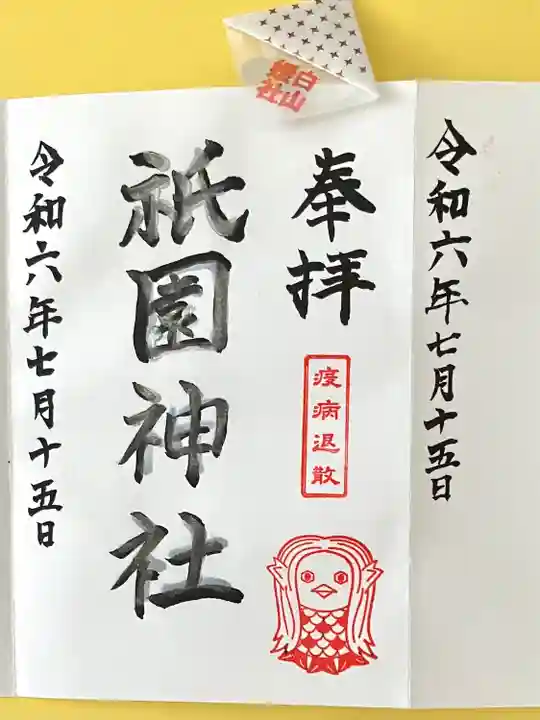 令和六年七月十五日
奉拝
疫病退散
祇園神社
令和六年七月十五日
白山